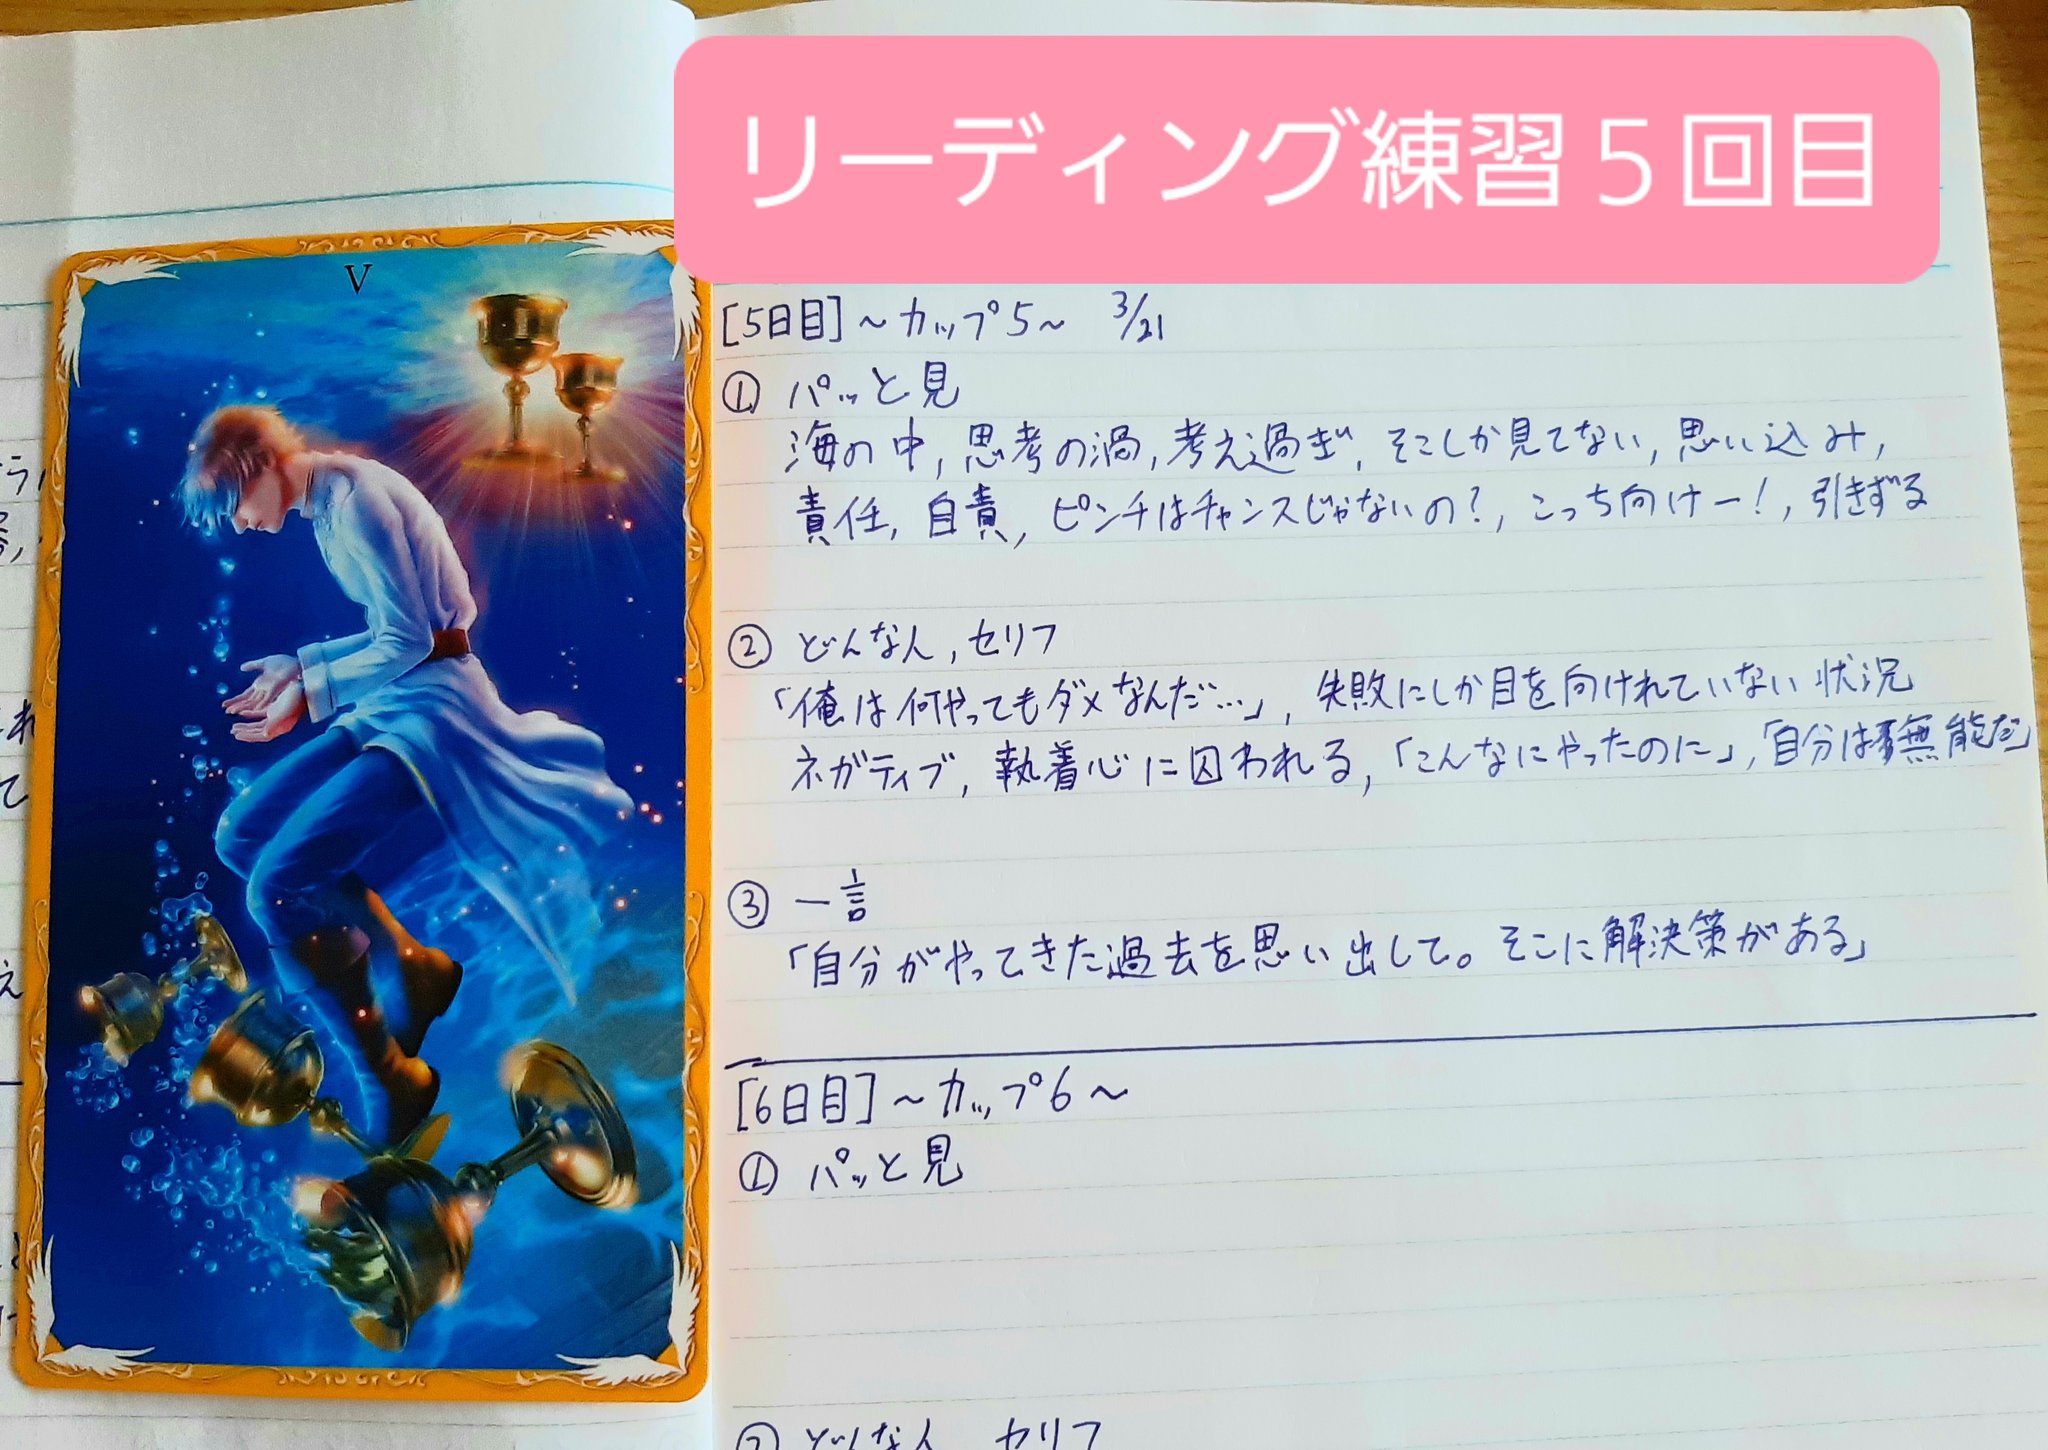 リーディング練習5回目
V
[5日目]～カップ5～ 3/21
① パッと見
海の中, 思考の渦, 考え過ぎ, そこしか見てない, 思い込み,
責任, 自責, ピンチはチャンスじゃないの?, こっち向けー!, 引きずる
② どんな人, セリフ
「俺は何やってもダメなんだ…」, 失敗にしか目を向けれていない状況
ネガティブ, 執着心に囚われる, 「こんなにやったのに」, 「自分は無能だ」
③ 一言
「自分がやってきた過去を思い出して。そこに解決策がある」
[6日目]～カップ6～
① パッと見
② どんな人 セリフ